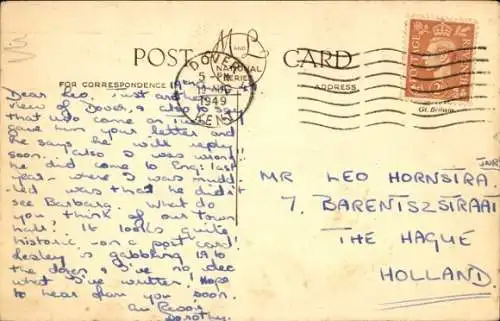 POST CARD
M and L
NATIONAL SERIES
FOR CORRESPONDENCE
ADDRESS
DOVER
5 - PM
1949
KENT
POSTAGE REVENUE
Gt. Britain.
Dear Leo. Just another
view of Dover, & also to say
that Udo came on
gave him your letter and
he says he will reply
soon. (also I was wrong
he did come to Eng: last
year - where I was mudd-
led was that he didn't
see Barbara. What do
you think of our town
hall? It looks quite
historic - on a post card!
Lesley is gabbling
the dozen & I've no idea
what I've written! Hope
to hear from you soon.
Au Revoir
Dorothy.
JNR.
MR LEO HORNSTRA
7, BARENTSZSTRAAT
THE HAGUE
HOLLAND